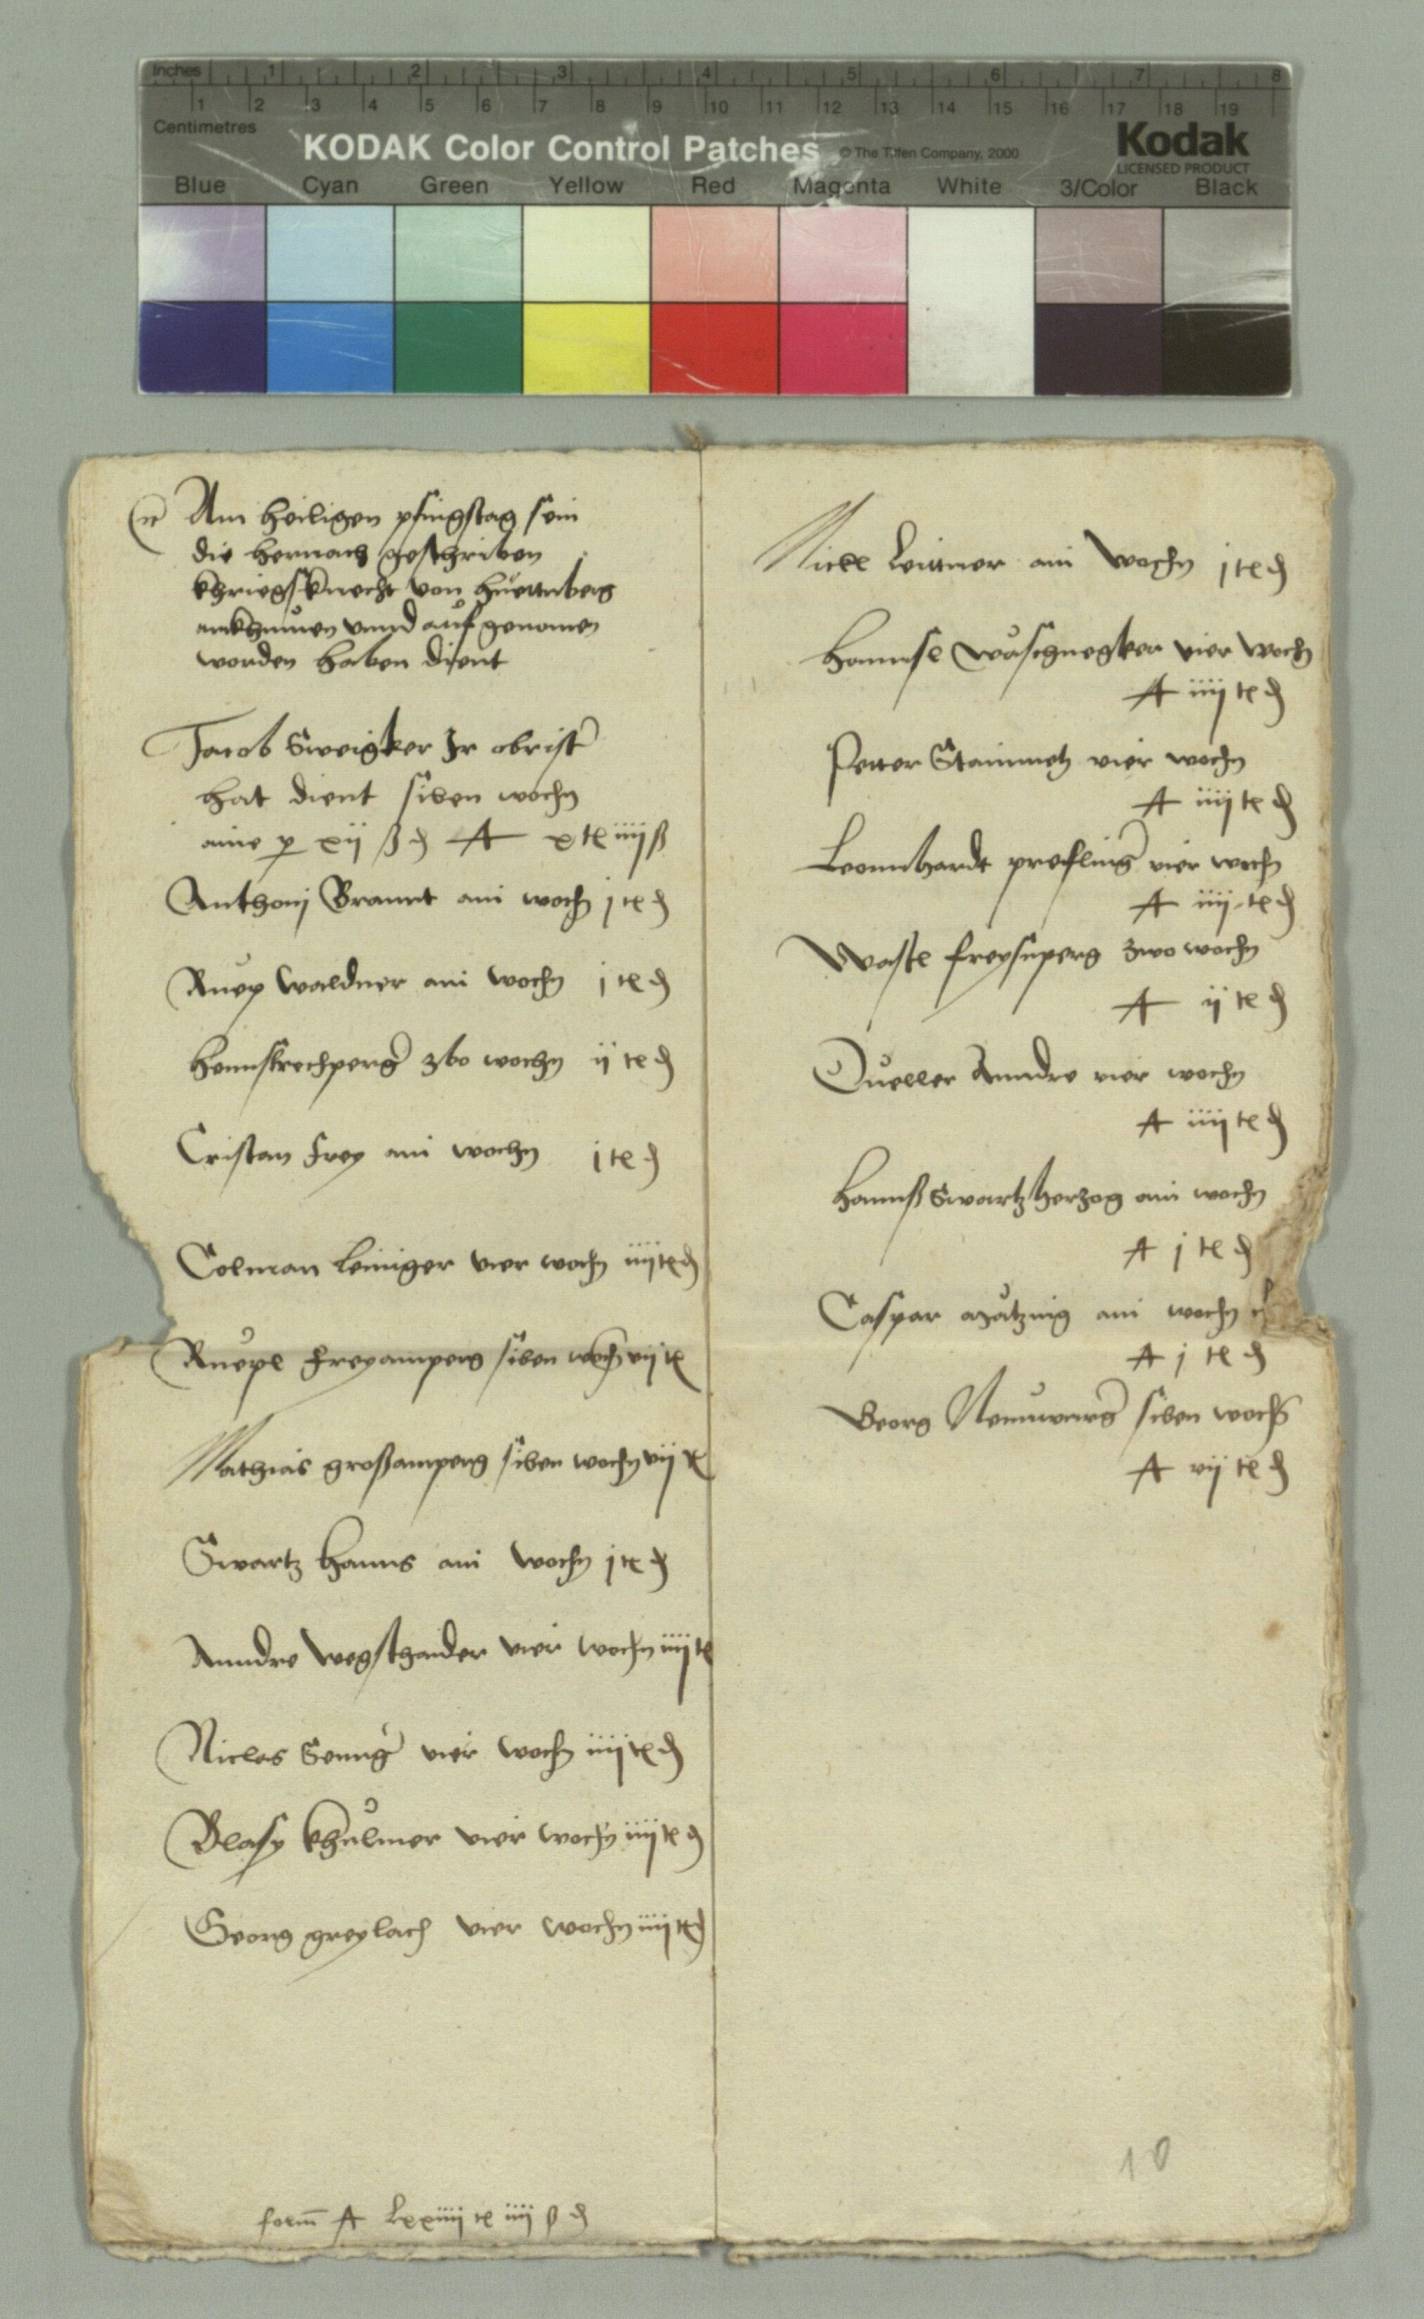 Inches 1 2 3 4 5 6 7 8
1 2 3 4 5 6 7 8 9 10 11 12 13 14 15 16 17 18 19
Centimetres
KODAK Color Control Patches © The Tiffen Company, 2000 Kodak
LICENSED PRODUCT
Blue Cyan Green Yellow Red Magenta White 3/Color Black
Am heiligen pfingstag sein
die hernach geschriben
khriegsknecht von huettnberg
ankhumen vnnd aufgenomen
worden haben dient
Jacob Sweigker Ir obrister
hat dient siben wochn
aine p xij ß d A x tℓ iiij ß
Anthonj Brannt ain wochn j tℓ d
Ruep Waldner ain wochn j tℓ d
zbo wochn ij tℓ d
Cristan Frey ain wochn j tℓ d
Colman Leiniger vier wochn iiij tℓ d
Ruepl Freyamperg siben wochn vij tℓ
Mathias großamperg siben wochn vij tℓ
Swartz Hanns ain wochn j tℓ d
Anndre Wegsthaider vier wochn iiij tℓ
Niclas vier wochn iiij tℓ d
Blasy khulmer vier wochn iiij tℓ d
Georg greylach vier wochn iiij tℓ d
A Lxxiiij tℓ iiij ß d
Nickl Leittner ain wochn j tℓ d
Hannsl vier wochn
A iiij tℓ d
Petter Stainmetz vier wochn
A iiij tℓ d
Leonnhardt prefling vier wochn
A iiij tℓ d
Wastl freysnperg zwo wochn
A ij tℓ d
Queller Anndre vier wochn
A iiij tℓ d
Hannß Swartzherzog ain wochn
A j tℓ d
Caspar ain wochn
A j tℓ d
Georg siben wochn
A vij tℓ d
10